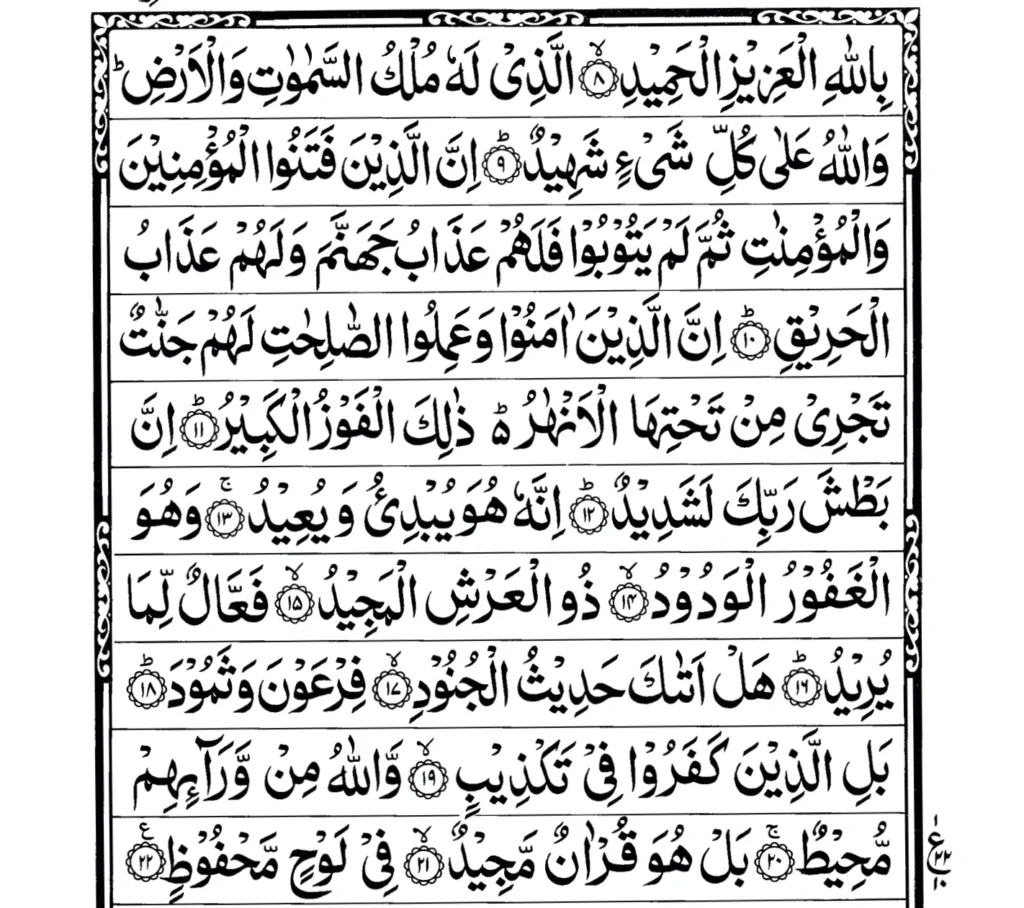 بِاللّٰهِ الْعَزِيْزِ الْحَمِيْدِ ۙ﴿۸﴾ الَّذِىْ لَهٗ مُلْكُ السَّمٰوٰتِ وَالْاَرْضِ ؕ
وَاللّٰهُ عَلٰى كُلِّ شَىْءٍ شَهِيْدٌ ؕ﴿۹﴾ اِنَّ الَّذِيْنَ فَتَنُوا الْمُؤْمِنِيْنَ
وَالْمُؤْمِنٰتِ ثُمَّ لَمْ يَتُوْبُوْا فَلَهُمْ عَذَابُ جَهَنَّمَ وَلَهُمْ عَذَابُ
الْحَرِيْقِ ؕ﴿۱۰﴾ اِنَّ الَّذِيْنَ اٰمَنُوْا وَعَمِلُوا الصّٰلِحٰتِ لَهُمْ جَنّٰتٌ
تَجْرِىْ مِنْ تَحْتِهَا الْاَنْهٰرُ ؕ۵ ذٰلِكَ الْفَوْزُ الْكَبِيْرُ ؕ﴿۱۱﴾ اِنَّ
بَطْشَ رَبِّكَ لَشَدِيْدٌ ؕ﴿۱۲﴾ اِنَّهٗ هُوَ يُبْدِئُ وَيُعِيْدُ ۚ﴿۱۳﴾ وَهُوَ
الْغَفُوْرُ الْوَدُوْدُ ۙ﴿۱۴﴾ ذُو الْعَرْشِ الْمَجِيْدُ ۙ﴿۱۵﴾ فَعَّالٌ لِّمَا
يُرِيْدُ ؕ﴿۱۶﴾ هَلْ اَتٰىكَ حَدِيْثُ الْجُنُوْدِ ۙ﴿۱۷﴾ فِرْعَوْنَ وَثَمُوْدَ ؕ﴿۱۸﴾
بَلِ الَّذِيْنَ كَفَرُوْا فِىْ تَكْذِيْبٍ ۙ﴿۱۹﴾ وَّاللّٰهُ مِنْ وَّرَآئِهِمْ
مُّحِيْطٌ ۚ﴿۲۰﴾ بَلْ هُوَ قُرْاٰنٌ مَّجِيْدٌ ۙ﴿۲۱﴾ فِىْ لَوْحٍ مَّحْفُوْظٍ ﴿۲۲﴾ ع
۱ ع ۲۲ ۱۰